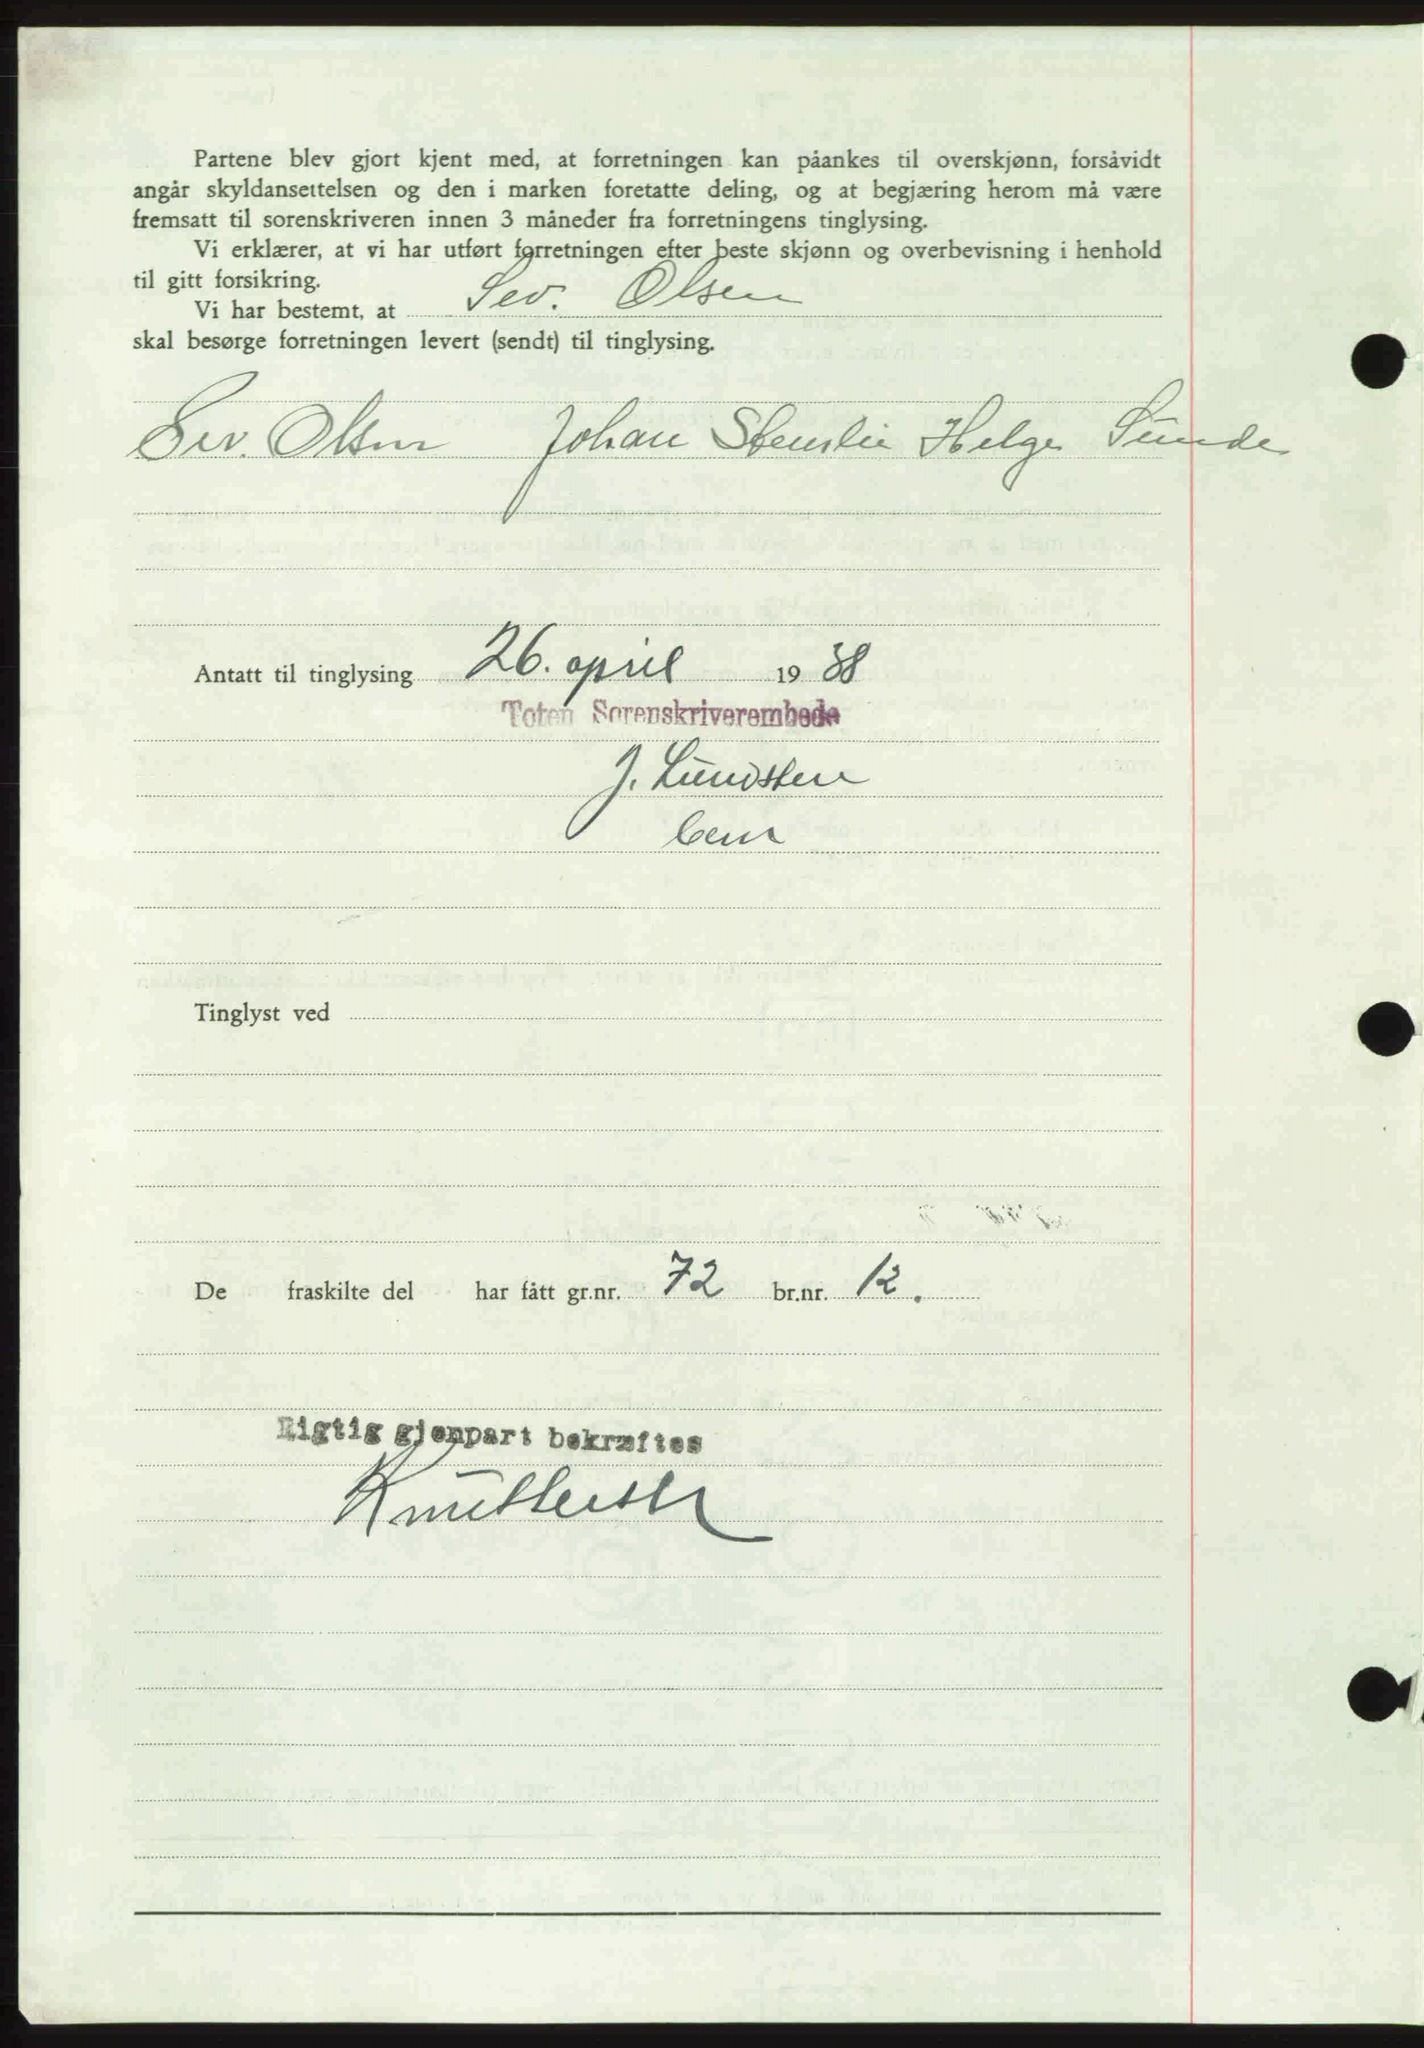 Partene blev gjort kjent med, at forretningen kan påankes til overskjønn, forsåvidt
angår skyldansettelsen og den i marken foretatte deling, og at begjæring herom må være
fremsatt til sorenskriveren innen 3 måneder fra forretningens tinglysing.
Vi erklærer, at vi har utført forretningen efter beste skjønn og overbevisning i henhold
til gitt forsikring.
Vi har bestemt, at Sev. Olsen
skal besørge forretningen levert (sendt) til tinglysing.
Sev. Olsen Johan Stenslie Helge Sunde
Antatt til tinglysing 26. april 1938
Toten Sorenskriverembede
J. Lundsten
Tinglyst ved
De fraskilte del har fått gr.nr. 72 br.nr. 12.
Rigtig gjenpart bekræftes